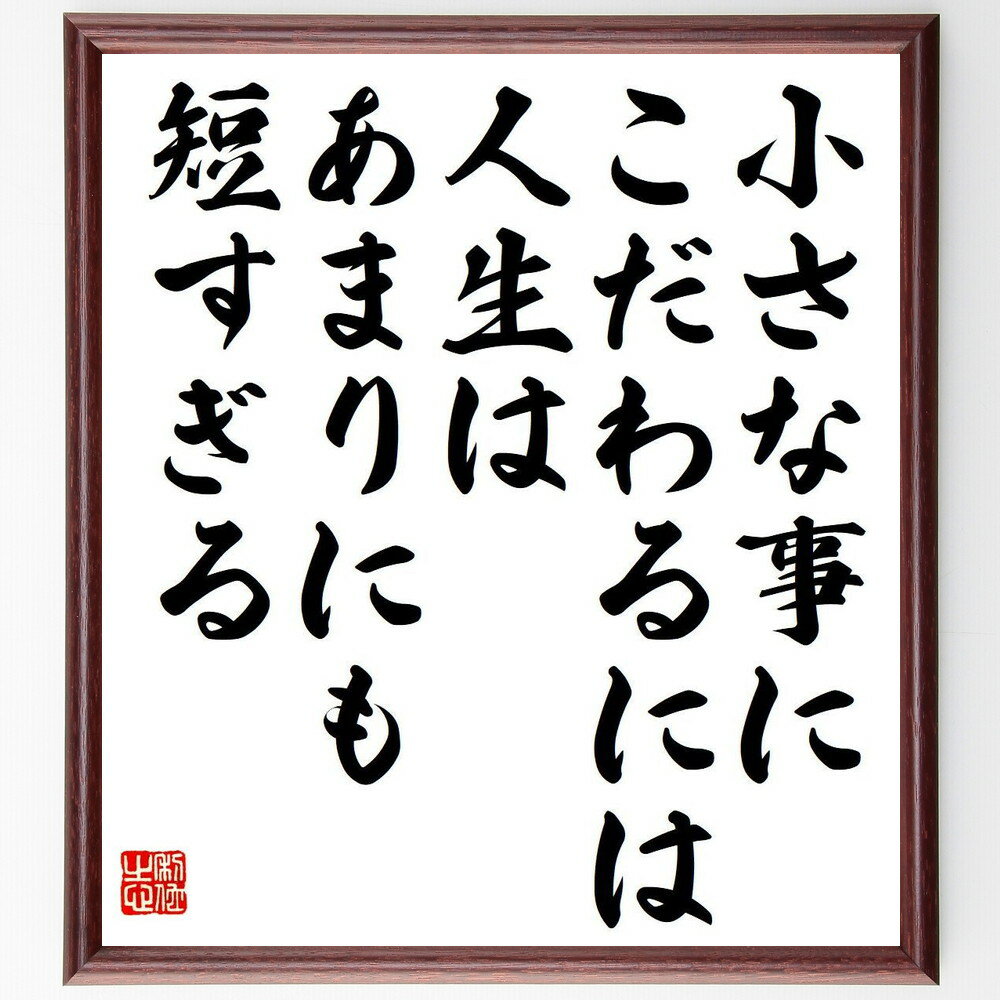 小さな事に
こだわるには
人生は
あまりにも
短すぎる